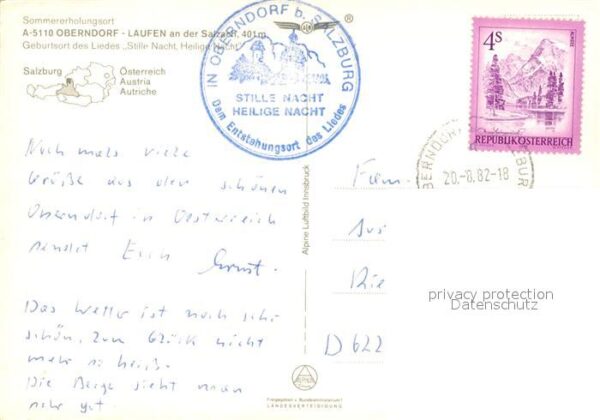 Sommererholungsort
A-5110 OBERNDORF - LAUFEN an der Salzach, 401m
Geburtsort des Liedes „Stille Nacht, Heilige Nacht"
Salzburg
Österreich
Austria
Autriche
IN OBERNDORF b. SALZBURG
STILLE NACHT
HEILIGE NACHT
Dem Entstehungsort des Liedes
®
4S
REPUBLIK ÖSTERREICH
20.-8.82-18
Noch mals viele
Grüße aus dem schönen
Oberndorf in Oesterreich
sendet Euch
Ernst.
Das Wetter ist noch sehr
schön, zum Glück nicht
mehr so heiß.
Die Berge sieht man
sehr gut.
Alpine Luftbild Innsbruck
Fam.
D 622
privacy protection
Datenschutz
Freigegeben v. Bundesministerium f.
LANDESVERTEIDIGUNG